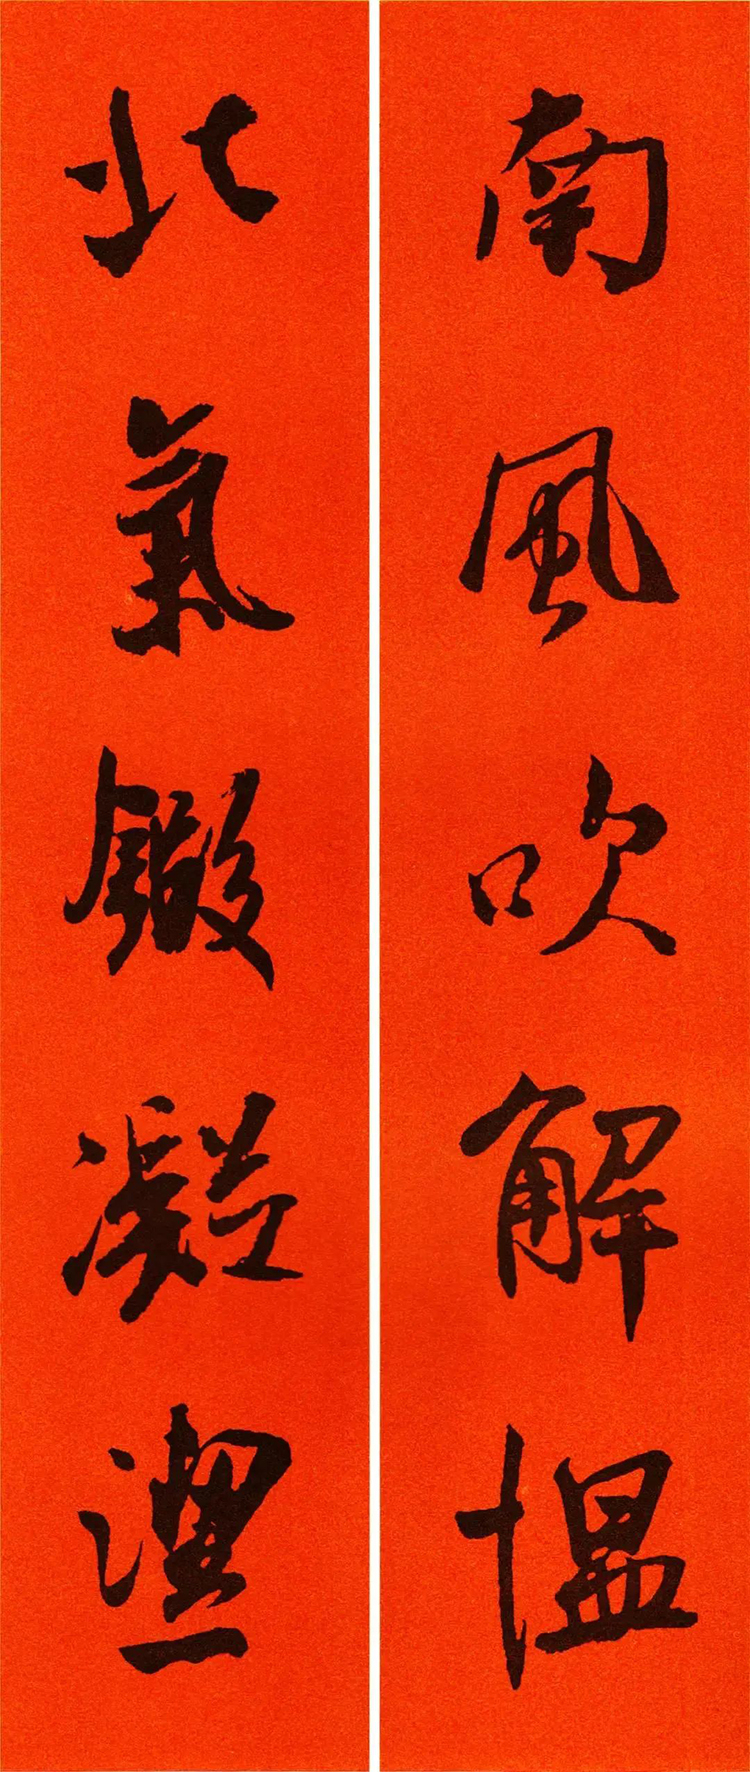 南風吹解慍
北氣鍛凝